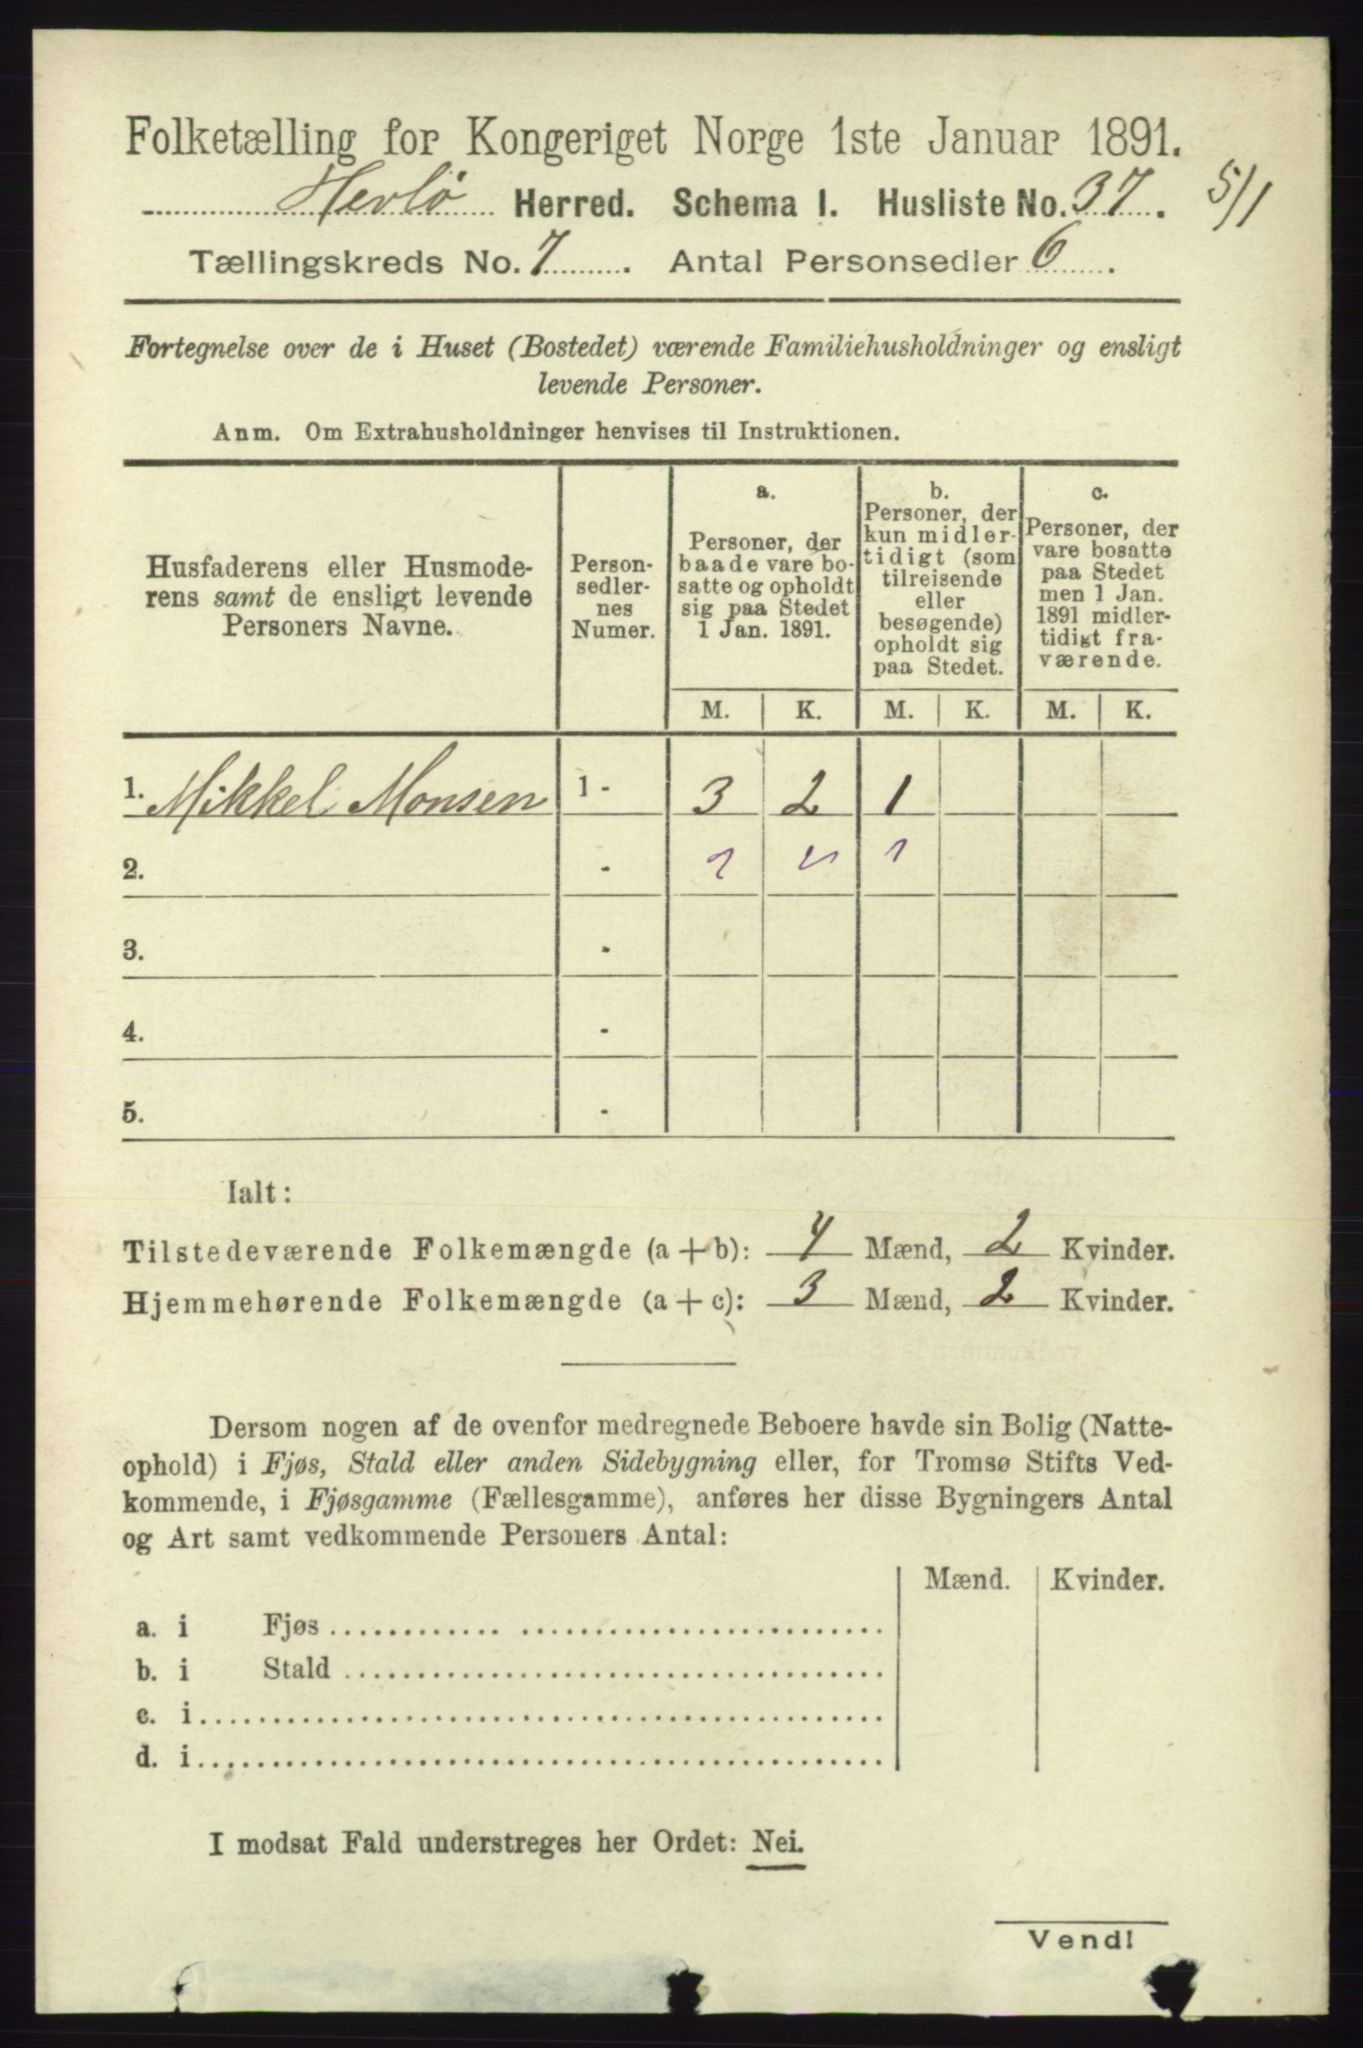 Folketælling for Kongeriget Norge 1ste Januar 1891.
Herlö Herred. Schema I. Husliste No. 37. 5/1
Tællingskreds No. 7. Antal Personsedler 6.
Fortegnelse over de i Huset (Bostedet) værende Familiehusholdninger og ensligt
levende Personer.
Anm. Om Extrahusholdninger henvises til Instruktionen.
Husfaderens eller Husmode-
rens samt de ensligt levende
Personers Navne.
Person-
sedler-
nes
Numer.
a.
Personer, der
baade vare bo-
satte og opholdt
sig paa Stedet
1 Jan. 1891.
b.
Personer, der
kun midler-
tidigt (som
tilreisende
eller
besøgende)
opholdt sig
paa Stedet.
c.
Personer, der
vare bosatte
paa Stedet
men 1 Jan.
1891 midler-
tidigt fra-
værende.
M. K. M. K. M. K.
1. Mikkel Monsen 1 - 3 2 1
2. -
3. -
4. -
5. -
Ialt:
Tilstedeværende Folkemængde (a + b): 4 Mænd, 2 Kvinder.
Hjemmehørende Folkemængde (a + c): 3 Mænd, 2 Kvinder.
Dersom nogen af de ovenfor medregnede Beboere havde sin Bolig (Natte-
ophold) i Fjøs, Stald eller anden Sidebygning eller, for Tromsø Stifts Ved-
kommende, i Fjøsgamme (Fællesgamme), anføres her disse Bygningers Antal
og Art samt vedkommende Personers Antal:
Mænd. Kvinder.
a. i Fjøs
b. i Stald
c. i
d. i
I modsat Fald understreges her Ordet: Nei.
Vend!